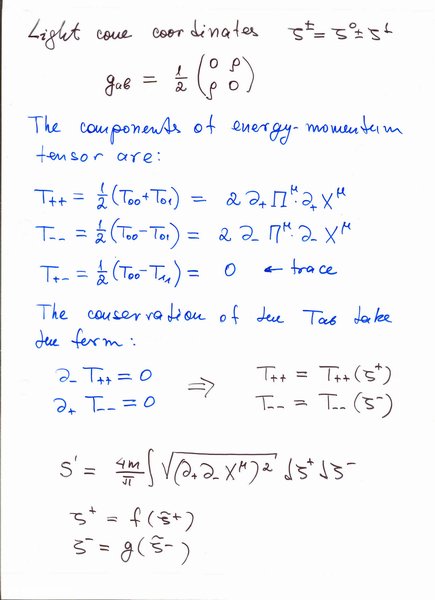 Light cone coordinates ζ± = ζ⁰ ± ζ¹
g_ab = 1/2 (0 ρ
ρ 0)
The components of energy-momentum
tensor are:
T₊₊ = 1/2 (T₀₀+T₀₁) = 2 ∂₊ Π^μ · ∂₊ X^μ
T₋₋ = 1/2 (T₀₀-T₀₁) = 2 ∂₋ Π^μ · ∂₋ X^μ
T₊₋ = 1/2 (T₀₀-T₁₁) = 0 ← trace
The conservation of the Tab take
the form:
∂₋ T₊₊ = 0 ⇒ T₊₊ = T₊₊(ζ⁺)
∂₊ T₋₋ = 0 T₋₋ = T₋₋(ζ⁻)
S' = 4m/π ∫ √(∂₊∂₋ X^μ)² dζ⁺ dζ⁻
ζ⁺ = f(ζ̃⁺)
ζ⁻ = g(ζ̃⁻)